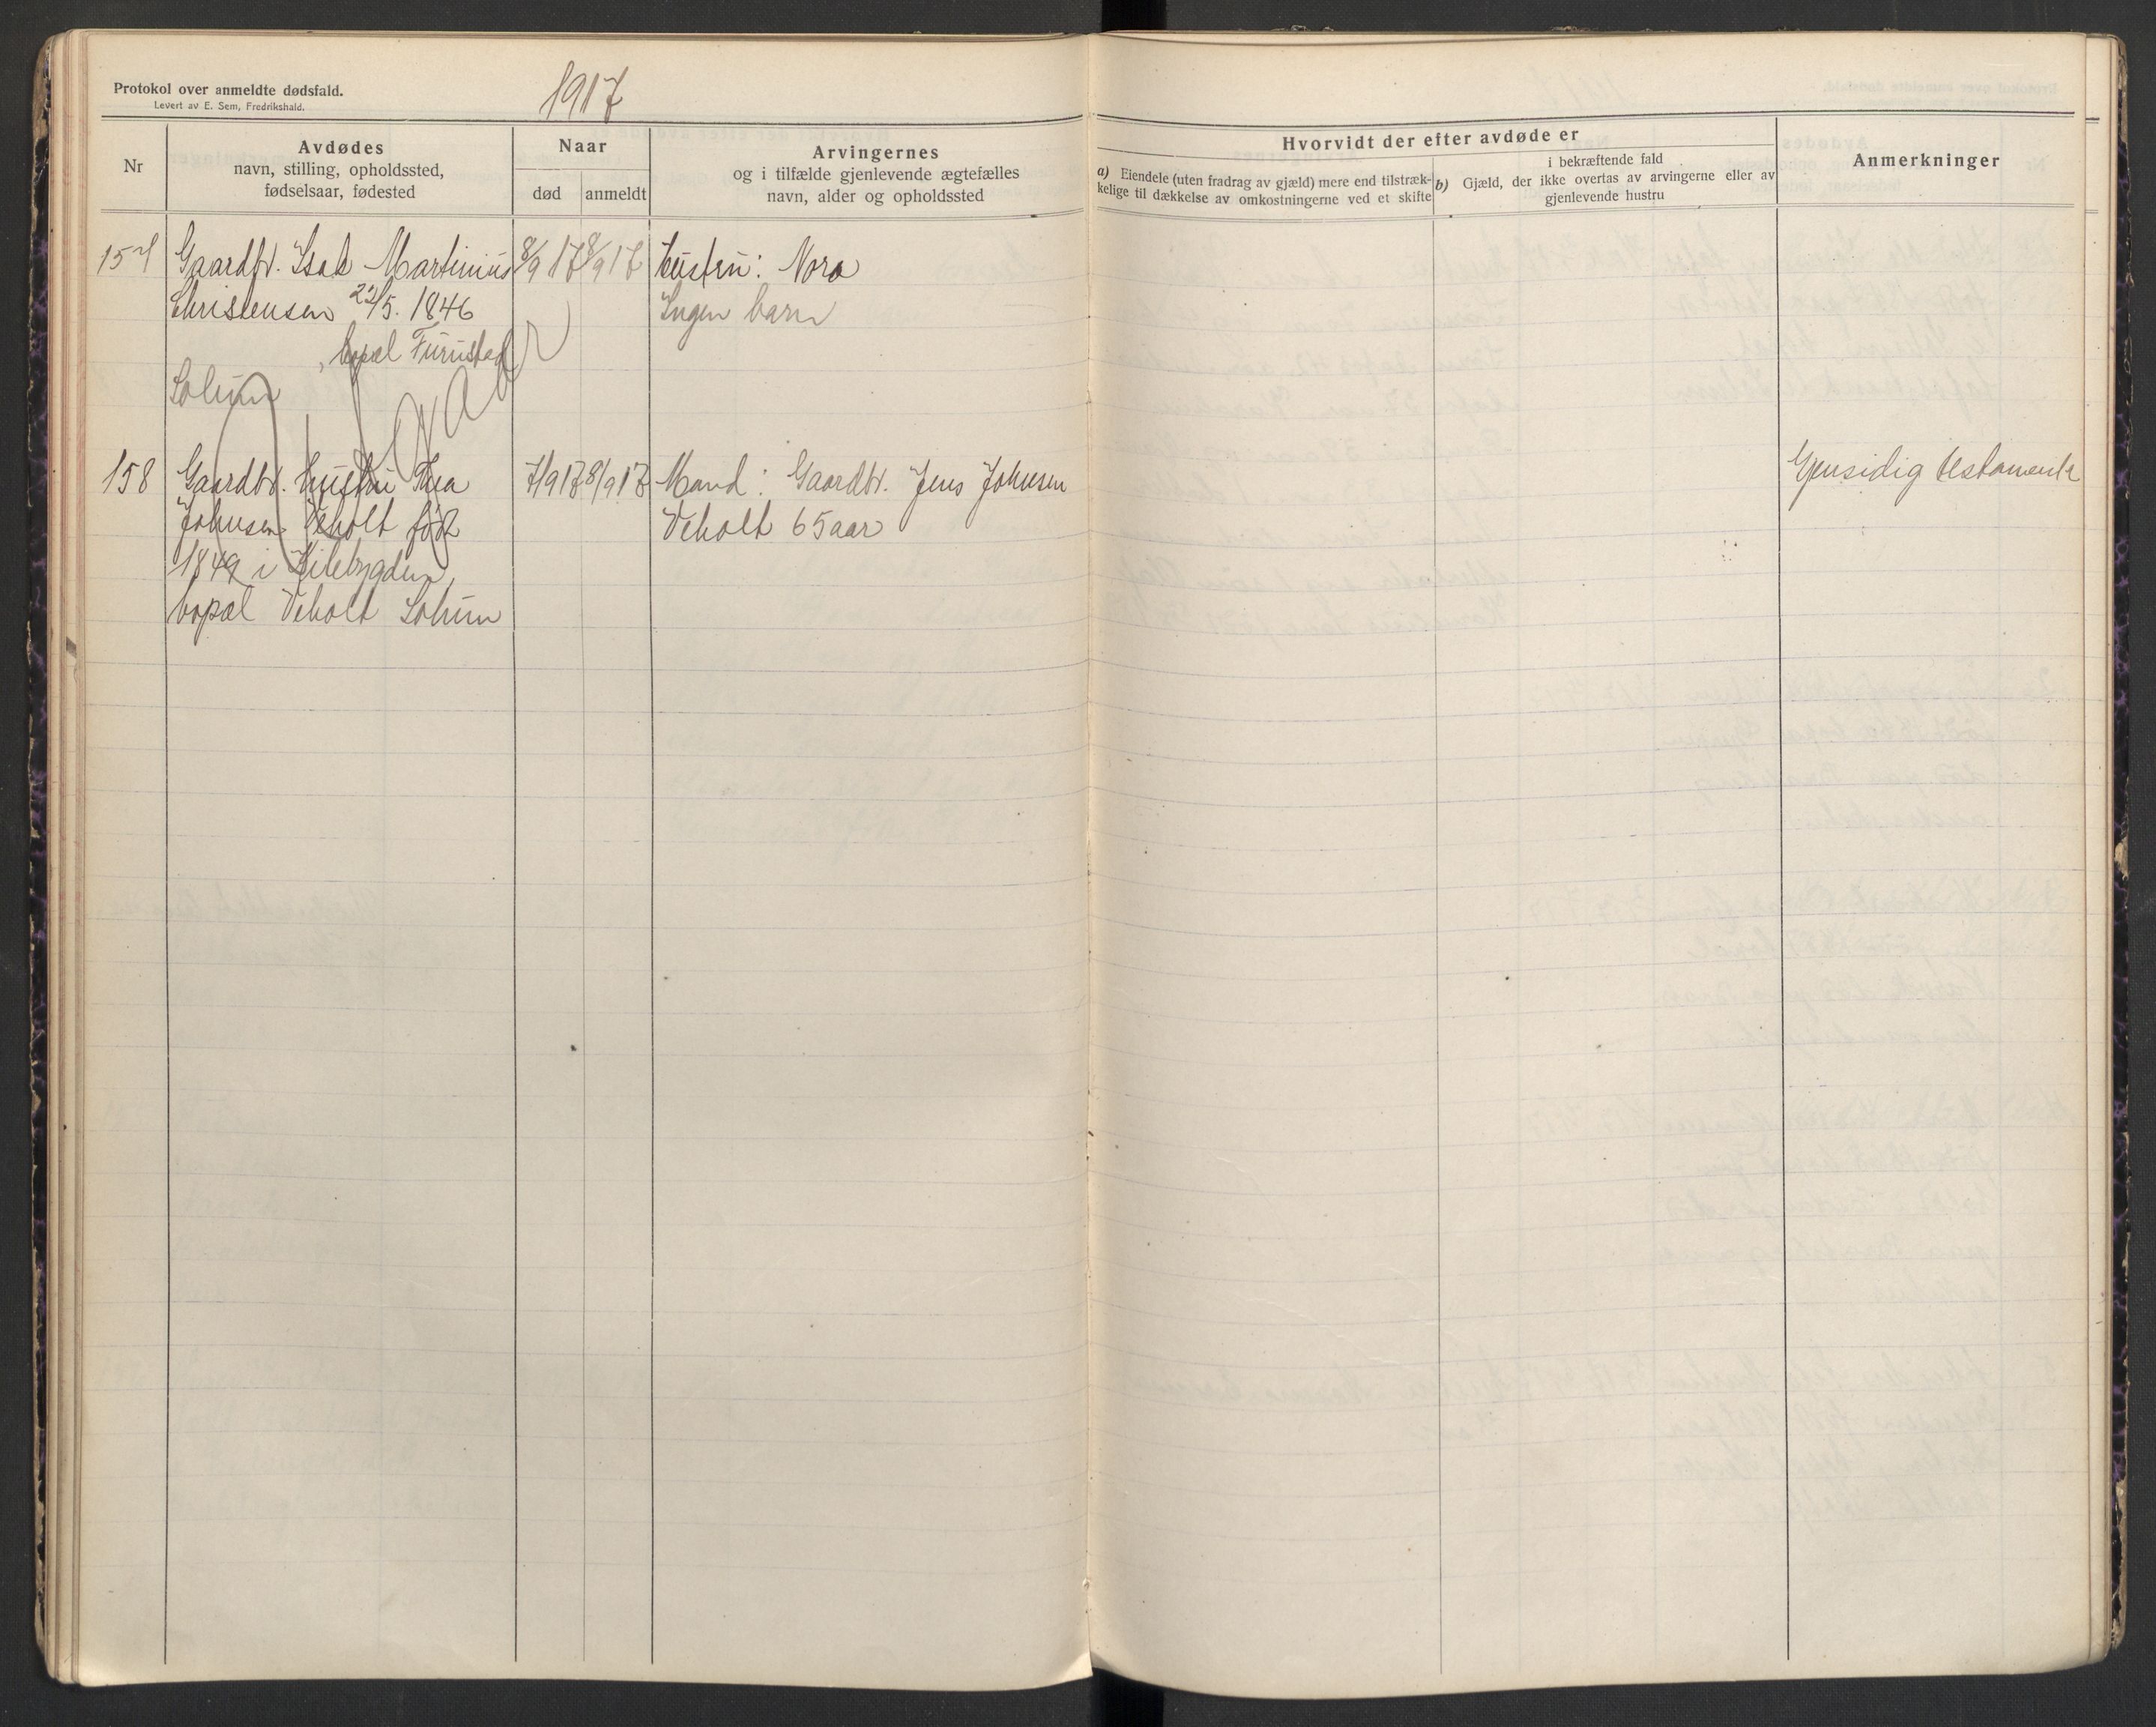 Protokol over anmeldte dødsfald.
Levert av E. Sem, Fredrikshald.
1917
Nr
Avdødes
navn, stilling, opholdssted,
fødselsaar, fødested
Naar
død
anmeldt
Arvingernes
og i tilfælde gjenlevende ægtefælles
navn, alder og opholdssted
Hvorvidt der efter avdøde er
a) Eiendele (uten fradrag av gjæld) mere end tilstræk-
kelige til dækkelse av omkostningerne ved et skifte
i bekræftende fald
b) Gjæld, der ikke overtas av arvingerne eller av
gjenlevende hustru
Anmerkninger
157 Gaardbr. Isak Martinius 8/9 17 8/9 17 Hustru: Nora
Christensen 22/5. 1846 Ingen barn
, bopæl Furustad
Solum
158 Gaardbr. hustru Thea 7/9 17 8/9 17 Mand: Gaardbr. Jens Johnsen Gjensidig testamente
Johnsen Veholt født Veholt 65 aar
1849 i Kilebygden,
bopæl Veholt Solum